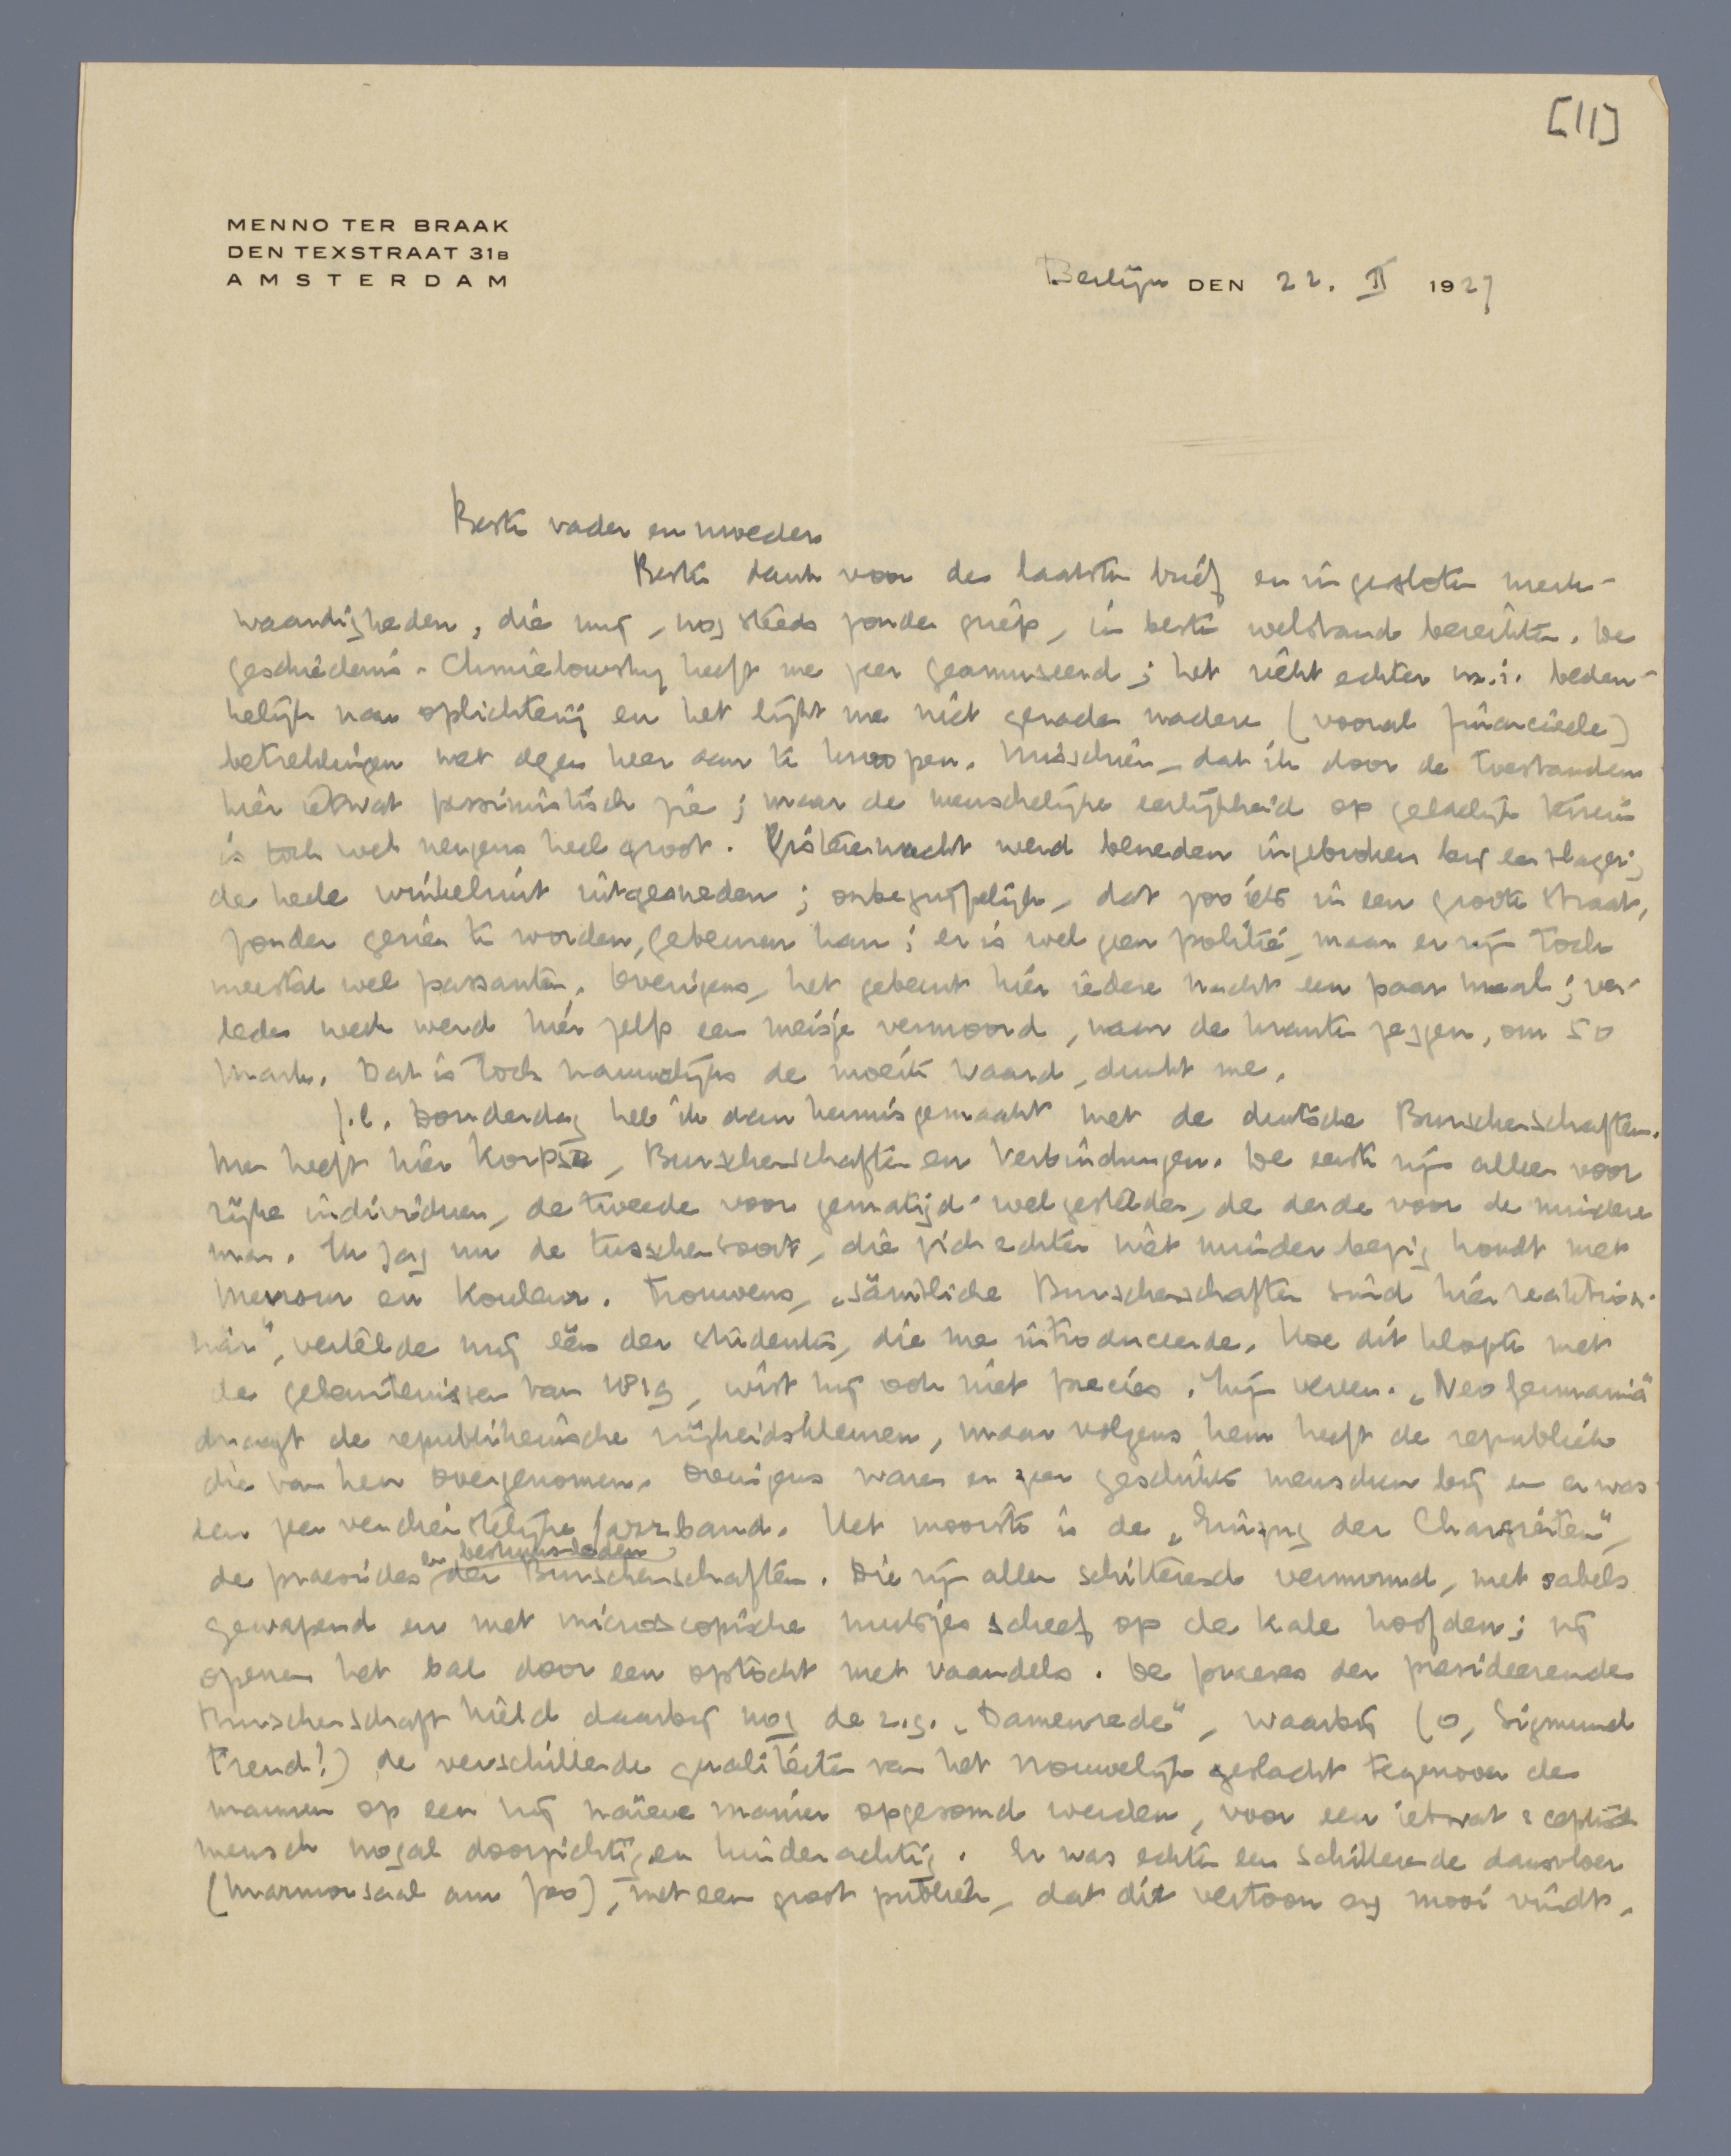 [11]
MENNO TER BRAAK
DEN TEXSTRAAT 31B
AMSTERDAM
Berlijn DEN 22. II 1927
Beste vader en moeder
Beste dank voor de laatste brief en ingesloten merk-
waardigheden, die mij, nog steeds zonder griep, in beste welstand bereikten. De
geschiedenis-Chmielowsky heeft me zeer geamuseerd; het riekt echter m.i. beden-
kelijk naar oplichterij en het lijkt me niet geraden nadere (vooral financieele)
betrekkingen met dezen heer aan te knoopen. Misschien, dat ik door de toestanden
hier ietwat pessimistisch zie; maar de menschelijke eerlijkheid op geldelijk terrein
is toch wel nergens heel groot. Gisterennacht werd beneden ingebroken bij een slager;
de heele winkelruit uitgesneden; onbegrijpelijk, dat zoo iets in een groote straat,
zonder gezien te worden, gebeuren kan; er is wel geen politie, maar er zijn toch
meestal wel passanten. Overigens, het gebeurt hier iedere nacht een paar maal; ver-
leden week werd hier zelfs een meisje vermoord, naar de kranten zeggen, om 50
Mark. Dat is toch nauwelijks de moeite waard, dunkt me.
j.l. Donderdag heb ik dan kennisgemaakt met de duitsche Burschenschaften.
Men heeft hier Korpse, Burschenschaften en Verbindungen. De eerste zijn alleen voor
rijke individuen, de tweede voor gematigd-welgestelden, de derde voor de mindere
man. Ik zag nu de tusschensoort, die zich echter niet minder bezig houdt met
Mensur en Kouleur. Trouwens, „sämtliche Burschenschaften sind hier reaktion-
när", vertelde mij één der studenten, die me introduceerde. Hoe dit klopte met
de gebeurtenissen van 1819, wist hij ook niet precies. Zijn vereen. „Neogermania"
draagt de republikeinsche vrijheidskleuren, maar volgens hem heeft de republiek
die van hen overgenomen. Overigens waren er zeer geschikte menschen bij en er was
een zeer verdienstelijke Jazzband. Het mooiste is de „Einzug der Chargierten",
en bestuursleden
de praesides der Burschenschaften. Die zijn allen schitterend vermomd, met sabels
gewapend en met microscopische mutsjes scheef op de kale hoofden; zij
openen het bal door een optocht met vaandels. De praeses der presideerende
Burschenschaft hield daarbij nog de z.g. „Damenrede", waarbij (o, Sigmund
Freud!) de verschillende qualiteiten van het vrouwelijk geslacht tegenover de
mannen op een vrij naïeve manier opgesomd werden, voor een ietwat sceptisch
mensch nogal doorzichtig en kinderachtig. Er was echter een schitterende dansvloer
(Marmorsaal am Zoo), met een groot publiek, dat dit vertoon erg mooi vindt.